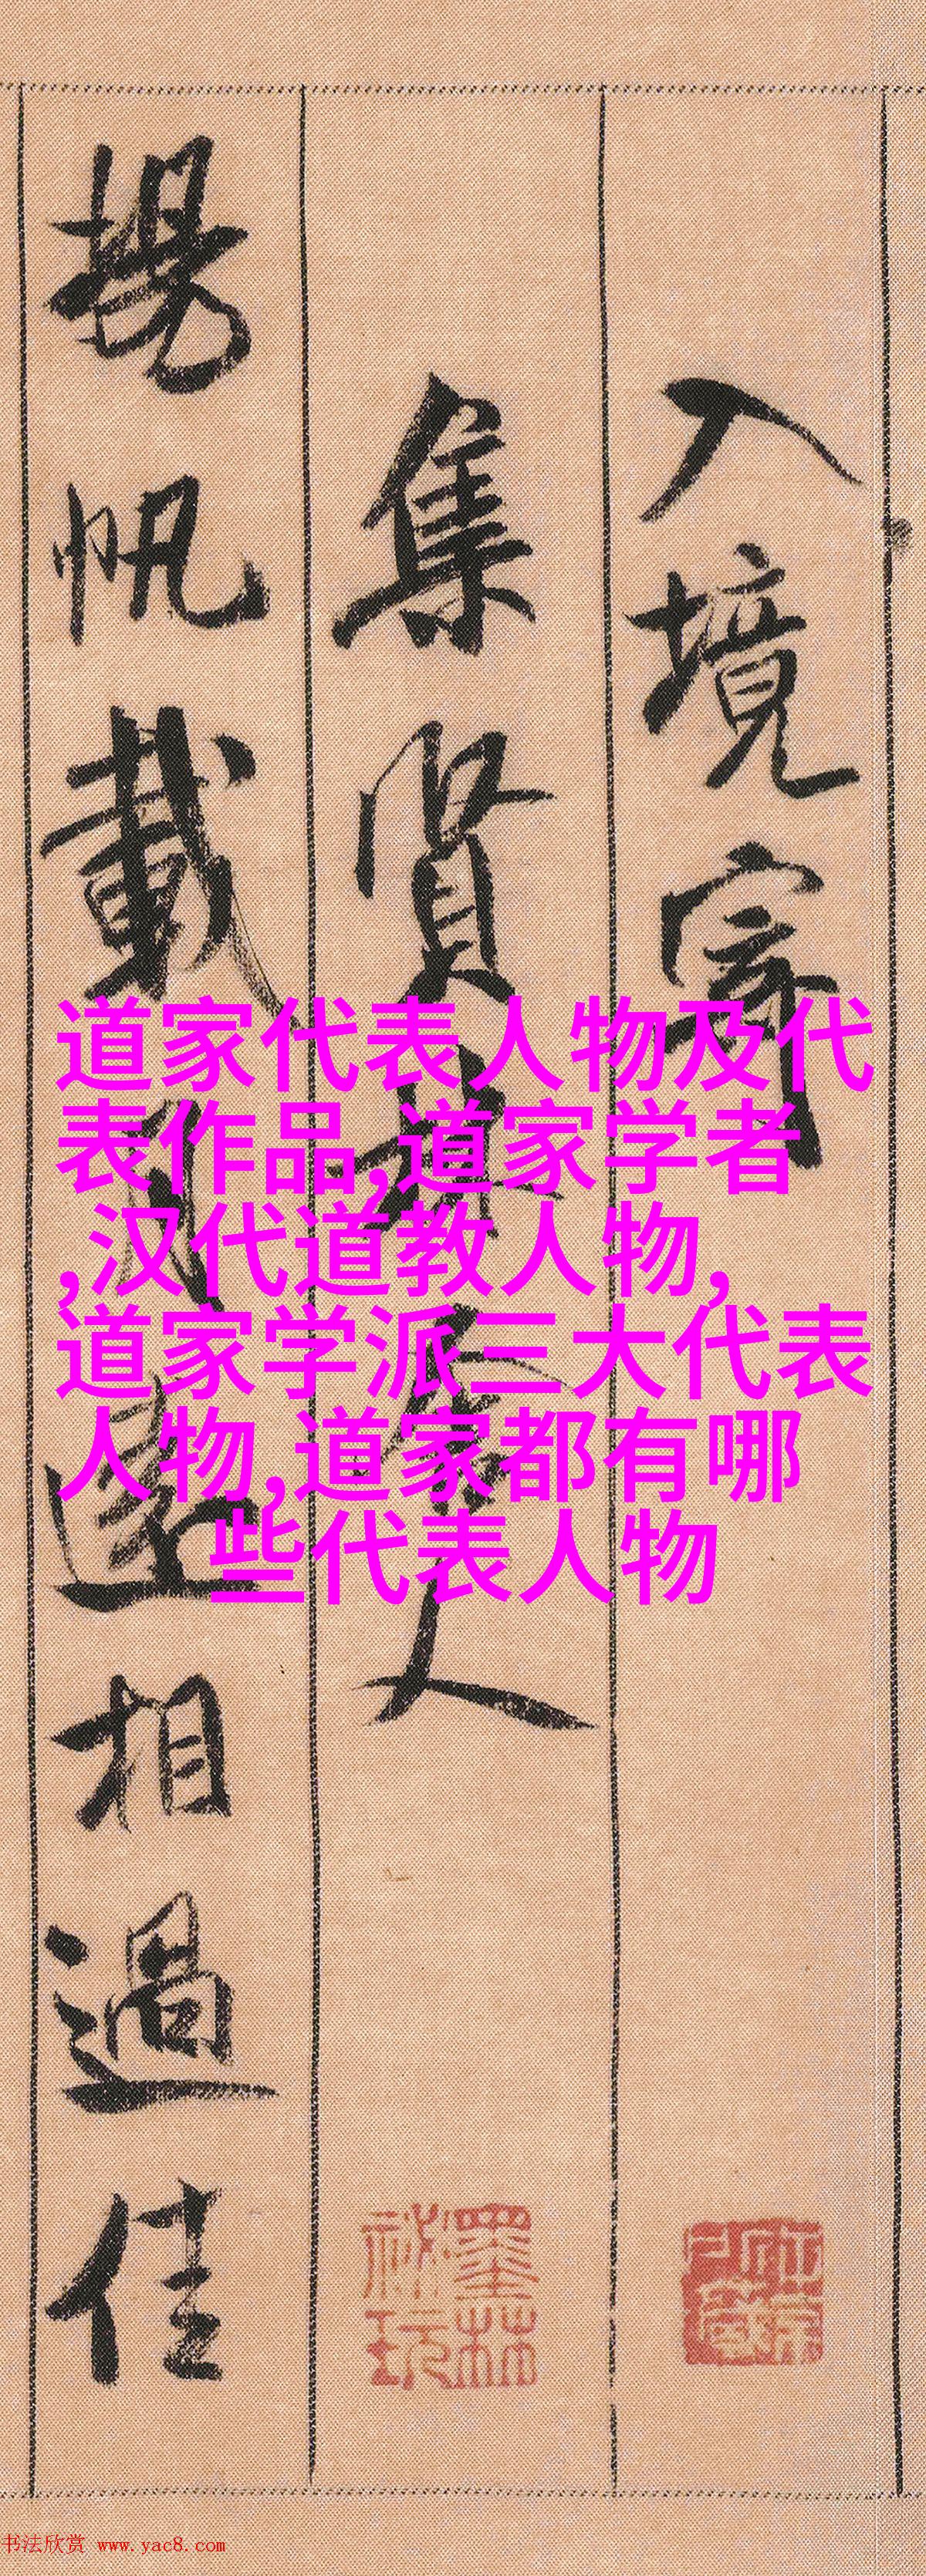 入境寄
集贤林舍人
揚帆載月遠相過佳
道家代表人物及代
表作品,道家学者
,汉代道教人物,
道家学派三大代表
人物,道家都有哪
些代表人物
墨林
祕玩
书法欣赏 www.yac8.com